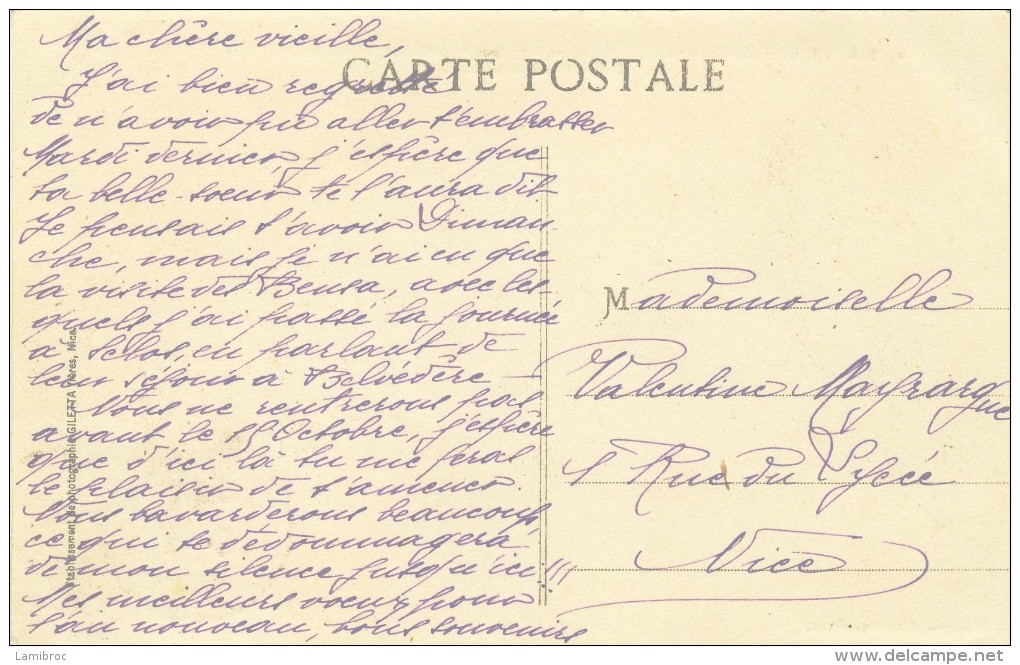 Ma chère vieille,
CARTE POSTALE
J'ai bien regretté
de n'avoir pu aller t'embrasser
Mardi dernier, j'espère que
ta belle-soeur te l'aura dit
Je pensais t'avoir Diman-
che, mais je n'ai eu que
la visite des Bensa, avec les-
quels j'ai passé la journée
à , en parlant de
leur séjour à Belvédère —
Nous ne rentrerons pas
avant le 15 Octobre, j'espère
que d'ici là tu me feras
le plaisir de t'amener.
Nous bavarderons beaucoup,
ce qui te dédommagera
de mon silence jusqu'ici !!!
Mes meilleurs voeux pour
l'an nouveau, bons souvenirs
Mademoiselle
Valentine Mayrargue
Rue du Lycée
Nice
Etablissement de photographie GILETTA frères, Nice
Lambroc
delcampe.net